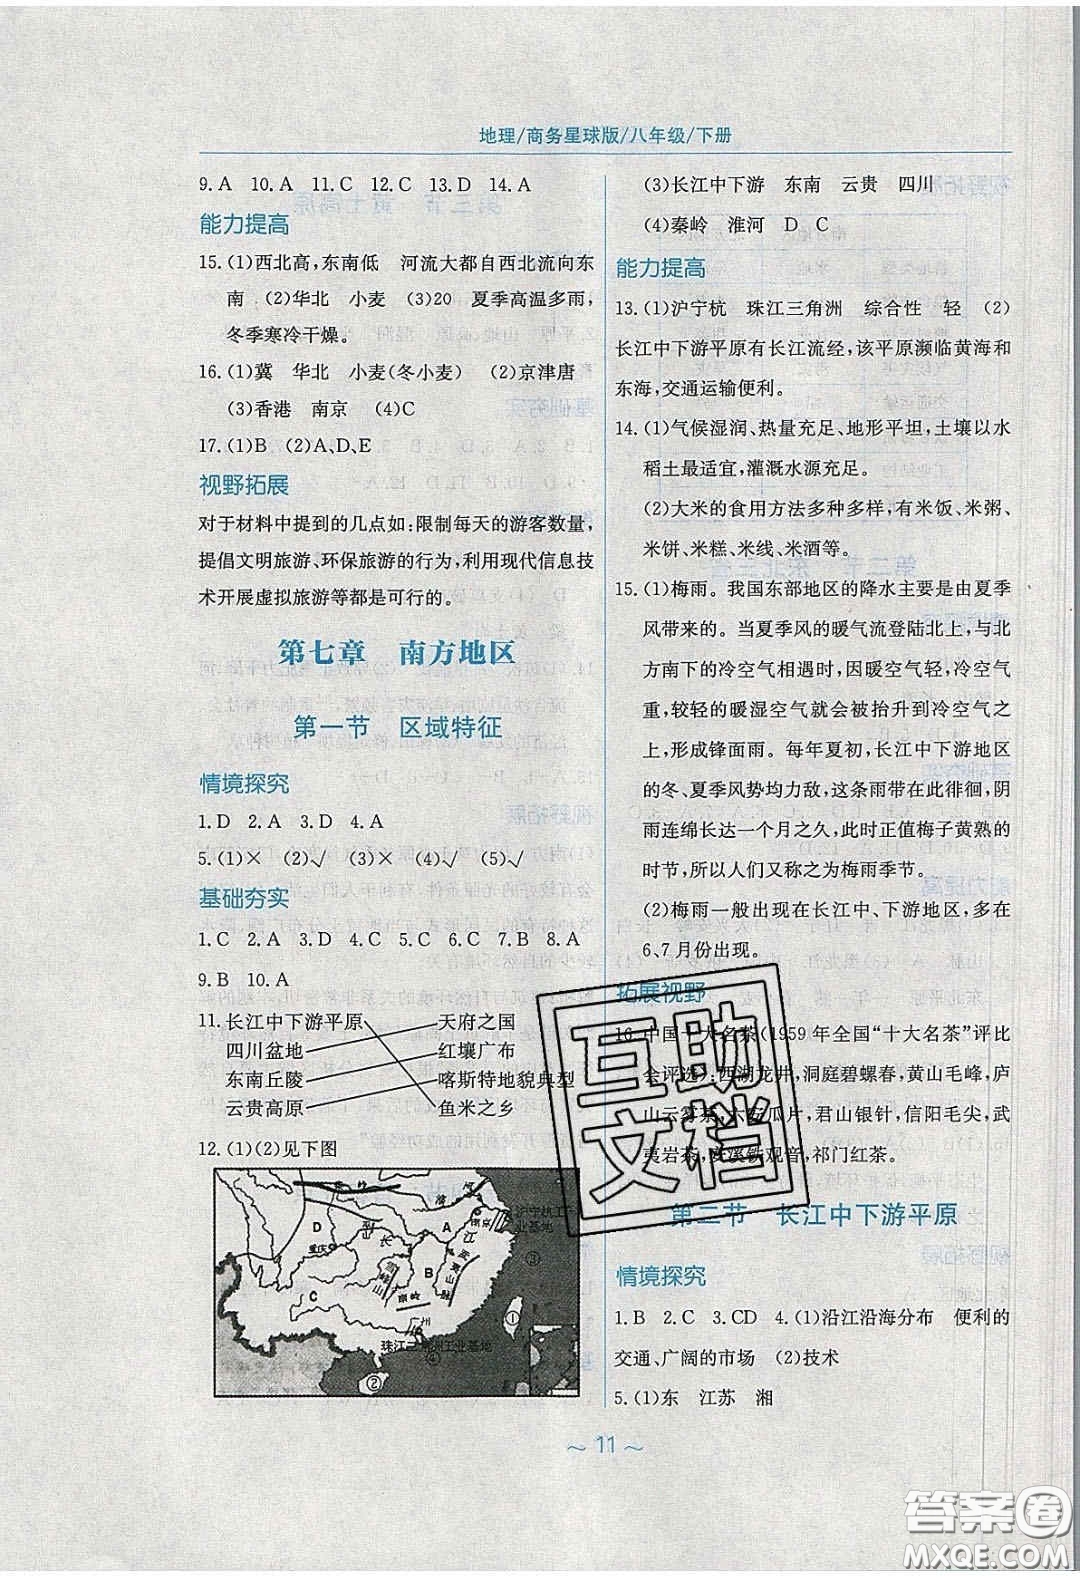 地理/商务星球版/八年级/下册
9. A 10. A 11. C 12. C 13. D 14. A
能力提高
15. (1)西北高,东南低 河流大都自西北流向东
南 (2)华北 小麦 (3)20 夏季高温多雨,
冬季寒冷干燥。
16. (1)冀 华北 小麦(冬小麦) (2)京津唐
(3)香港 南京 (4)C
17. (1)B (2)A、D、E
视野拓展
对于材料中提到的几点如:限制每天的游客数量,
提倡文明旅游、环保旅游的行为,利用现代信息技
术开展虚拟旅游等都是可行的。
第七章 南方地区
第一节 区域特征
情境探究
1. D 2. A 3. D 4. A
5. (1)× (2)√ (3)× (4)√ (5)√
基础夯实
1. C 2. A 3. D 4. C 5. C 6. C 7. B 8. A
9. B 10. A
11. 长江中下游平原 天府之国
四川盆地 红壤广布
东南丘陵 喀斯特地貌典型
云贵高原 鱼米之乡
12. (1)(2)见下图
秦 岭 淮 河
D 长 A 江
重庆 南京 沪宁杭工业基地
雪峰山 B 武夷山脉 ③
C 南岭 广州 ①
珠江三角洲工业基地
④ ②
(3)长江中下游 东南 云贵 四川
(4)秦岭 淮河 D C
能力提高
13. (1)沪宁杭 珠江三角洲 综合性 轻 (2)
长江中下游平原有长江流经,该平原濒临黄海和
东海,交通运输便利。
14. (1)气候湿润、热量充足、地形平坦,土壤以水
稻土最适宜,灌溉水源充足。
(2)大米的食用方法多种多样,有米饭、米粥、
米饼、米糕、米线、米酒等。
15. (1)梅雨。我国东部地区的降水主要是由夏季
风带来的。当夏季风的暖气流登陆北上,与北
方南下的冷空气相遇时,因暖空气轻,冷空气
重,较轻的暖湿空气就会被抬升到冷空气之
上,形成锋面雨。每年夏初,长江中下游地区
的冬、夏季风势均力敌,这条雨带在此徘徊,阴
雨连绵长达一个月之久,此时正值梅子黄熟的
时节,所以人们又称之为梅雨季节。
(2)梅雨一般出现在长江中、下游地区,多在
6、7月份出现。
拓展视野
16. 中国十大名茶(1959年全国“十大名茶”评比
会评选):西湖龙井,洞庭碧螺春,黄山毛峰,庐
山云雾茶,六安瓜片,君山银针,信阳毛尖,武
夷岩茶,安溪铁观音,祁门红茶。
第二节 长江中下游平原
情境探究
1. B 2. C 3. CD 4. (1)沿江沿海分布 便利的
交通、广阔的市场 (2)技术
5. (1)东 江苏 湘
～ 11 ～
互助
文档
答案圈
MXQE.COM